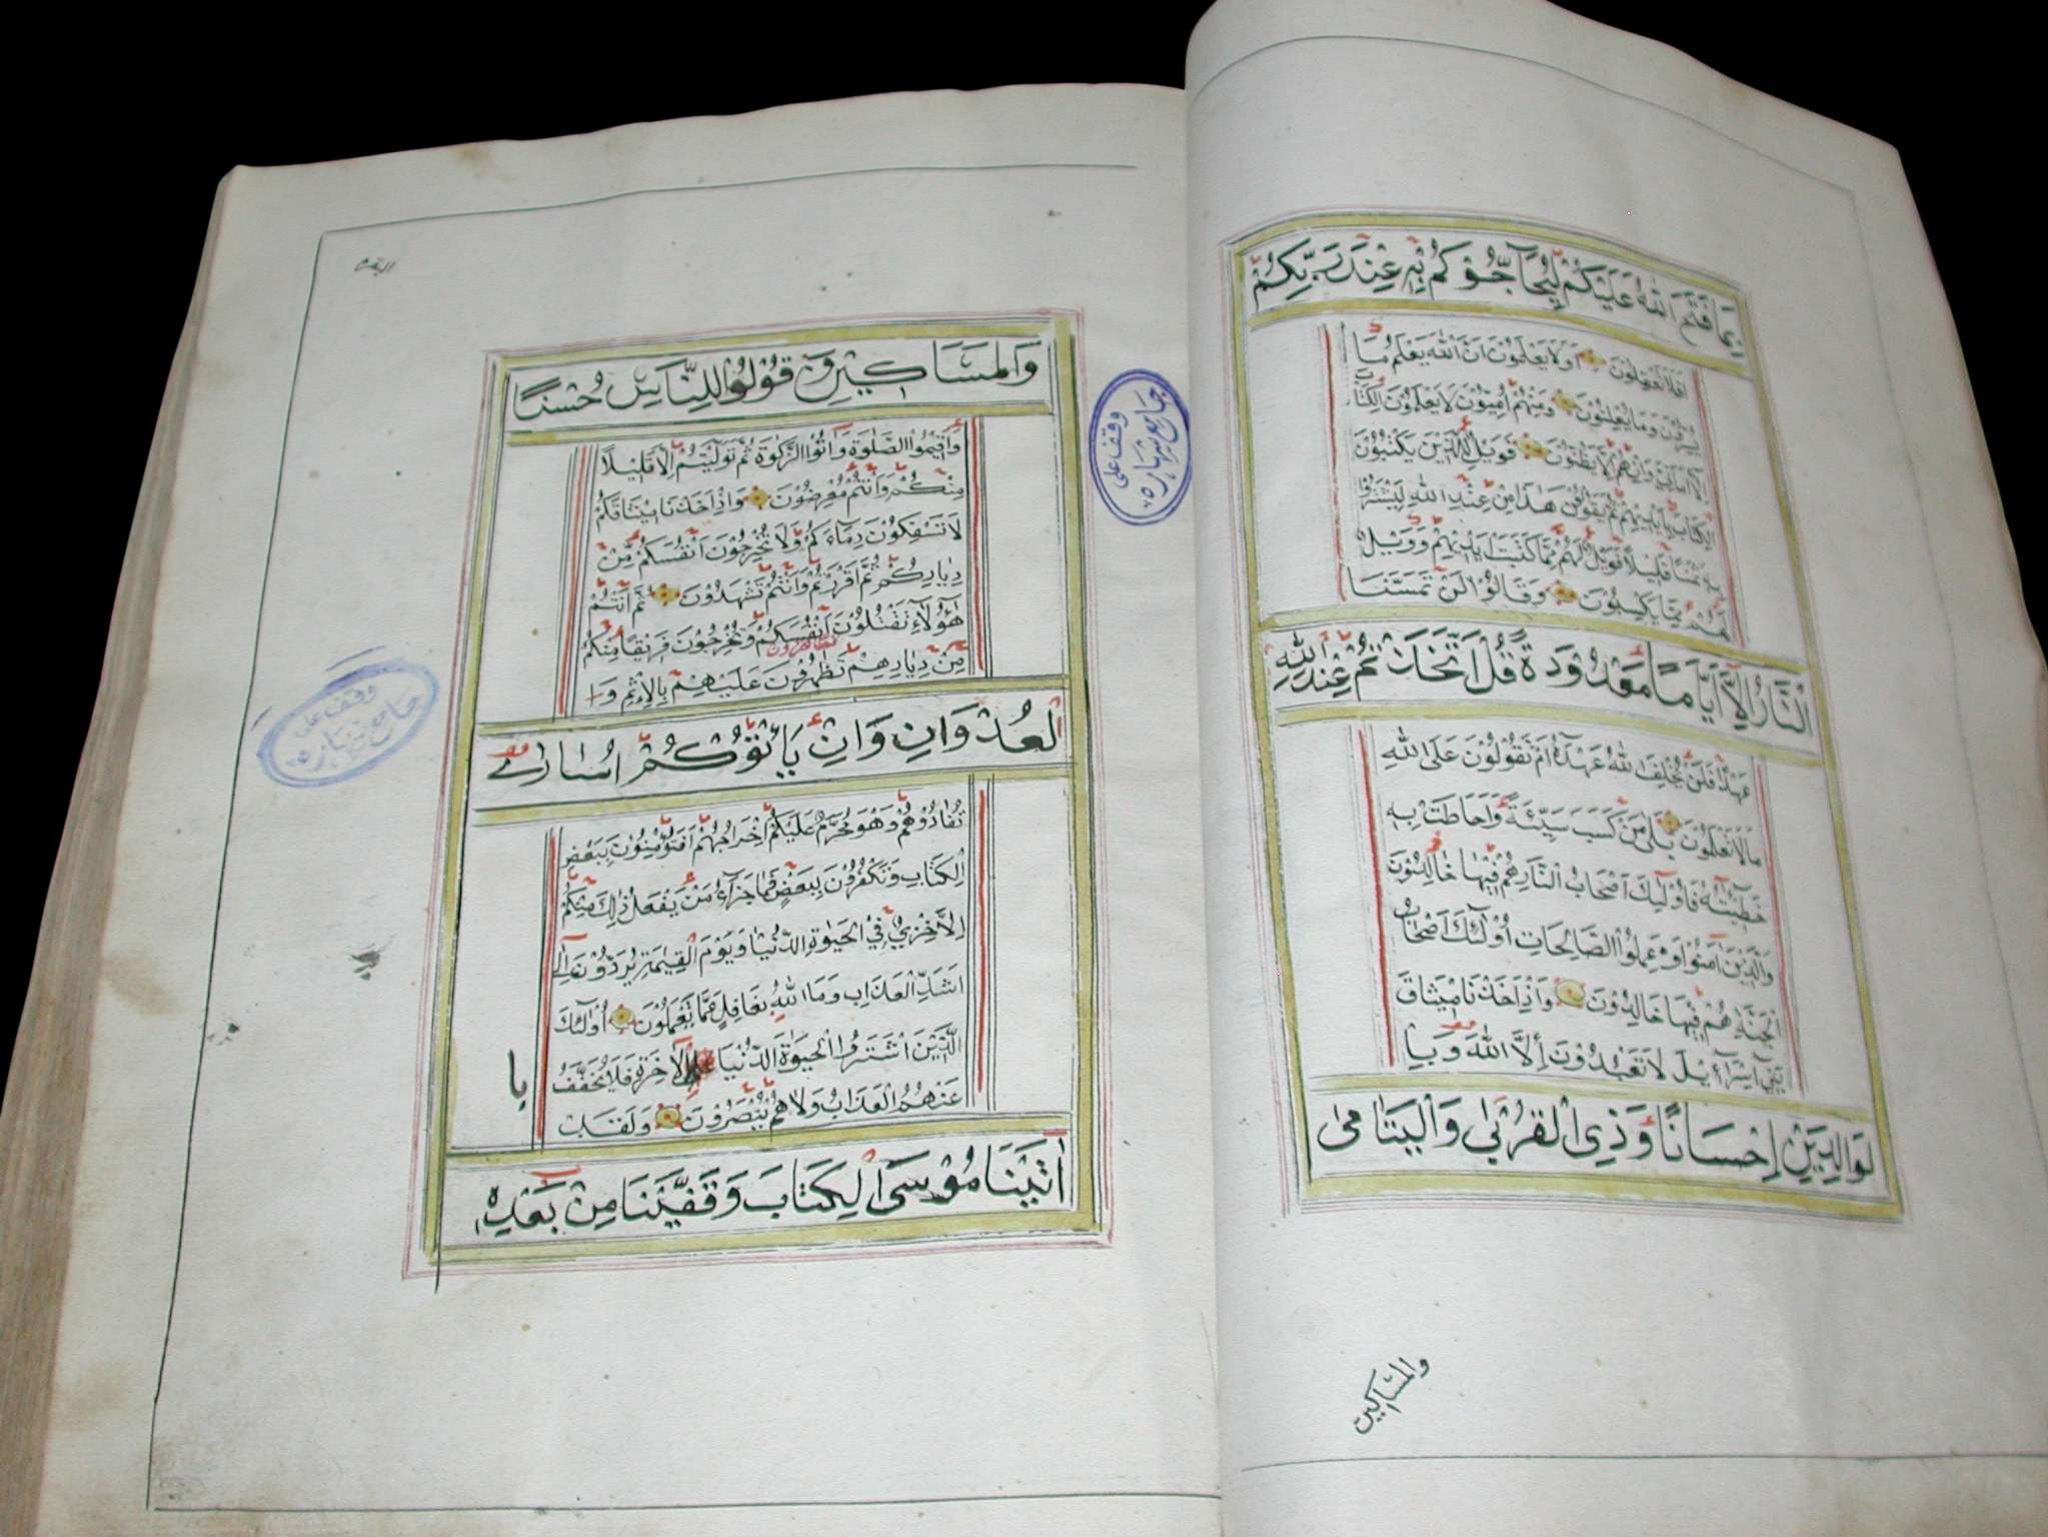 بِمَا فَتَحَ اللّٰهُ عَلَيْكُمْ لِيُحَآجُّوْكُمْ بِهٖ عِنْدَ رَبِّكُمْ
اَفَلَا تَعْقِلُوْنَ وَلَا يَعْلَمُوْنَ اَنَّ اللّٰهَ يَعْلَمُ مَا
يُسِرُّوْنَ وَمَا يُعْلِنُوْنَ وَمِنْهُمْ اُمِّيُّوْنَ لَا يَعْلَمُوْنَ الْكِتَابَ
اِلَّا اَمَانِيَّ وَاِنْ هُمْ اِلَّا يَظُنُّوْنَ فَوَيْلٌ لِلَّذِيْنَ يَكْتُبُوْنَ
الْكِتَابَ بِاَيْدِيْهِمْ ثُمَّ يَقُوْلُوْنَ هٰذَا مِنْ عِنْدِ اللّٰهِ لِيَشْتَرُوْا
بِهٖ ثَمَنًا قَلِيْلًا فَوَيْلٌ لَهُمْ مِمَّا كَتَبَتْ اَيْدِيْهِمْ وَوَيْلٌ
لَهُمْ مِمَّا يَكْسِبُوْنَ وَقَالُوْا لَنْ تَمَسَّنَا
النَّارُ اِلَّا اَيَّامًا مَعْدُوْدَةً قُلْ اَتَّخَذْتُمْ عِنْدَ اللّٰهِ
عَهْدًا فَلَنْ يُخْلِفَ اللّٰهُ عَهْدَهٗ اَمْ تَقُوْلُوْنَ عَلَى اللّٰهِ
مَا لَا تَعْلَمُوْنَ بَلٰى مَنْ كَسَبَ سَيِّئَةً وَاَحَاطَتْ بِهٖ
خَطِيْئَتُهٗ فَاُولٰٓئِكَ اَصْحَابُ النَّارِ هُمْ فِيْهَا خَالِدُوْنَ
وَالَّذِيْنَ اٰمَنُوْا وَعَمِلُوا الصَّالِحَاتِ اُولٰٓئِكَ اَصْحَابُ
الْجَنَّةِ هُمْ فِيْهَا خَالِدُوْنَ وَاِذْ اَخَذْنَا مِيْثَاقَ
بَنِيْٓ اِسْرَآئِيْلَ لَا تَعْبُدُوْنَ اِلَّا اللّٰهَ وَبِا
لْوَالِدَيْنِ اِحْسَانًا وَذِى الْقُرْبٰى وَالْيَتَامٰى
والمساكين
البقرة
وَالْمَسَاكِيْنِ وَقُوْلُوْا لِلنَّاسِ حُسْنًا
وَاَقِيْمُوا الصَّلٰوةَ وَاٰتُوا الزَّكٰوةَ ثُمَّ تَوَلَّيْتُمْ اِلَّا قَلِيْلًا
مِنْكُمْ وَاَنْتُمْ مُعْرِضُوْنَ وَاِذْ اَخَذْنَا مِيْثَاقَكُمْ
لَا تَسْفِكُوْنَ دِمَآءَكُمْ وَلَا تُخْرِجُوْنَ اَنْفُسَكُمْ مِنْ
دِيَارِكُمْ ثُمَّ اَقْرَرْتُمْ وَاَنْتُمْ تَشْهَدُوْنَ ثُمَّ اَنْتُمْ
هٰٓؤُلَآءِ تَقْتُلُوْنَ اَنْفُسَكُمْ وَتُخْرِجُوْنَ فَرِيْقًا مِنْكُمْ
تظاهرون
مِنْ دِيَارِهِمْ تَظٰهَرُوْنَ عَلَيْهِمْ بِالْاِثْمِ وَا
لْعُدْوَانِ وَاِنْ يَأْتُوْكُمْ اُسَارٰى
تُفَادُوْهُمْ وَهُوَ مُحَرَّمٌ عَلَيْكُمْ اِخْرَاجُهُمْ اَفَتُؤْمِنُوْنَ بِبَعْضِ
الْكِتَابِ وَتَكْفُرُوْنَ بِبَعْضٍ فَمَا جَزَآءُ مَنْ يَفْعَلُ ذٰلِكَ مِنْكُمْ
اِلَّا خِزْيٌ فِي الْحَيٰوةِ الدُّنْيَا وَيَوْمَ الْقِيٰمَةِ يُرَدُّوْنَ اِلٰٓى
اَشَدِّ الْعَذَابِ وَمَا اللّٰهُ بِغَافِلٍ عَمَّا تَعْمَلُوْنَ اُولٰٓئِكَ
الَّذِيْنَ اشْتَرَوُا الْحَيٰوةَ الدُّنْيَا بِالْاٰخِرَةِ فَلَا يُخَفَّفُ
با
عَنْهُمُ الْعَذَابُ وَلَا هُمْ يُنْصَرُوْنَ وَلَقَدْ
اٰتَيْنَا مُوْسَى الْكِتَابَ وَقَفَّيْنَا مِنْ بَعْدِهٖ
وقف على
جامع شهاره
وقف على
جامع شهاره